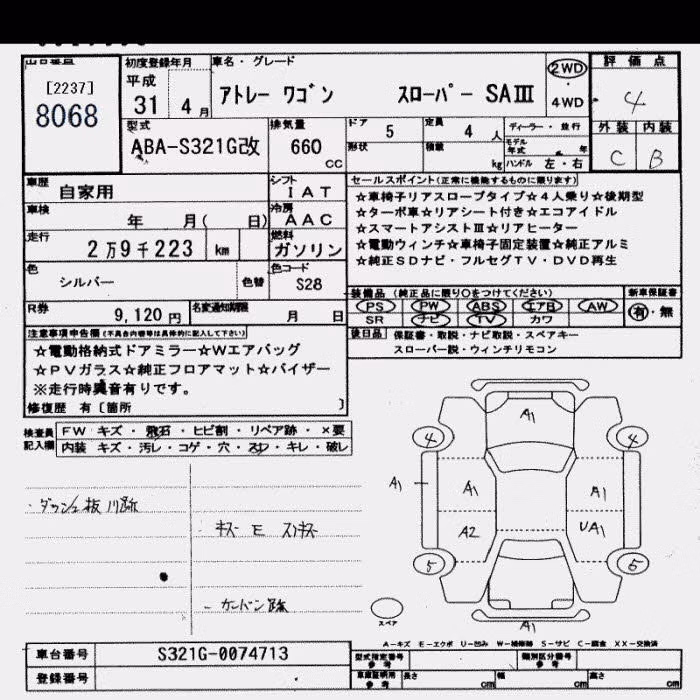 [2237]
8068
初度登録年月
平成
31 4 月
車名・グレード
アトレー ワゴン スローパー SAⅢ
2WD
・
4WD
評価点
4
外装 内装
C B
型式
ABA-S321G改
排気量
660
CC
ドア
5
定員
4 人
形状
積載
kg
ディーラー・並行
モデル年式 年
ハンドル 左・右
車歴
自家用
シフト
IAT
車検
年 月( 日)
冷房
AAC
走行
2万9千223 km
燃料
ガソリン
色
シルバー
色替
色コード
S28
R券
9,120 円
名変通知期限
月 日
セールスポイント(正常に機能するものに限ります)
☆車椅子リアスロープタイプ☆4人乗り☆後期型
☆ターボ車☆リアシート付き☆エコアイドル
☆スマートアシストⅢ☆リアヒーター
☆電動ウィンチ☆車椅子固定装置☆純正アルミ
☆純正SDナビ・フルセグTV・DVD再生
装備品 (純正品に限り○をつけてください)
新車保証書
PS PW ABS エアB AW
SR ナビ TV カワ
有・無
後日品
保証書・取説・ナビ取説・スペアキー
スローパー説・ウィンチリモコン
注意事項申告欄(不具合内容等は具体的に記入して下さい)
☆電動格納式ドアミラー☆Wエアバッグ
☆PVガラス☆純正フロアマット☆バイザー
※走行時異音有りです。
修復歴 有〔箇所 〕
検査員
記入欄
FW キズ・飛石・ヒビ割・リペア跡・×要
内装 キズ・汚レ・コゲ・穴・スレ・キレ・破レ
キズ E スリキズ
A1
4 4
A1 A1 A1
A2 UA1
5 5
スペア
A1
A-キズ E-エクボ U-凹み W-補修跡 S-サビ C-腐食 XX-交換済
車台番号
S321G-0074713
登録番号
型式指定番号
参考
類別区分番号
参考
車庫証明用
参考
長さ cm
幅 cm
高さ cm